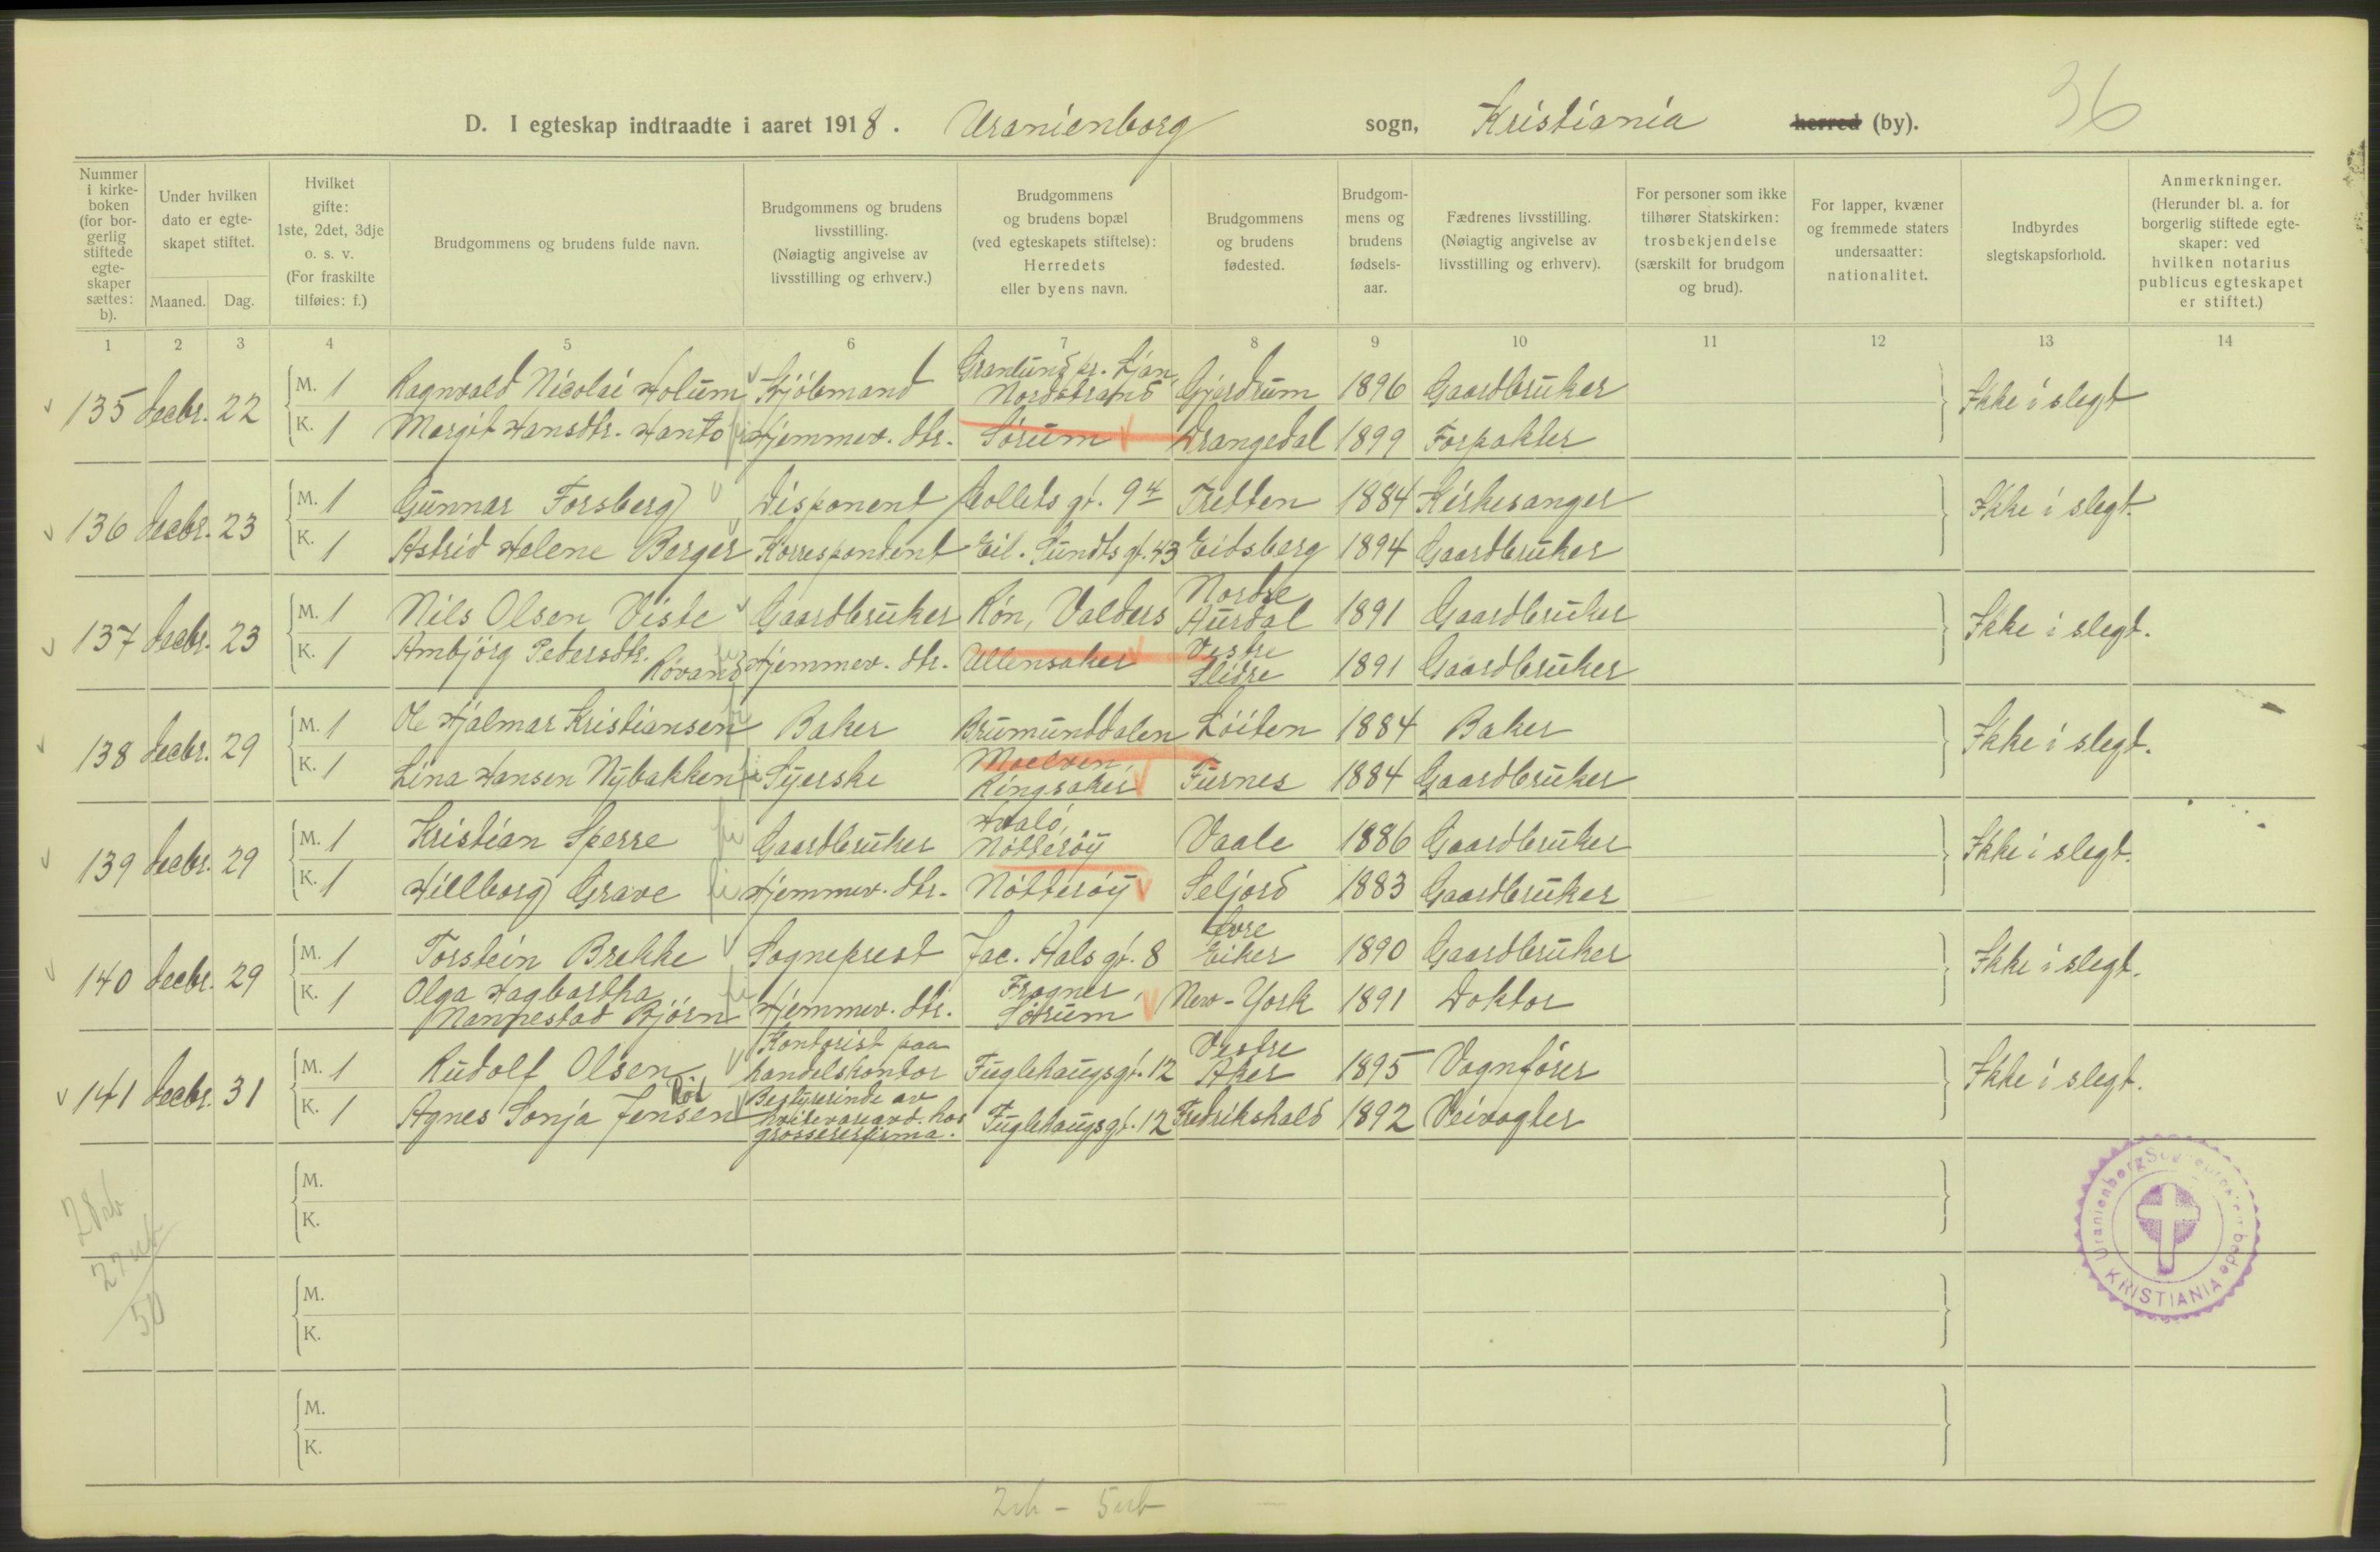 36
D. I egteskap indtraadte i aaret 1918. Uranienborg sogn, Kristiania herred (by).
Nummer i kirke-boken (for bor-gerlig stiftede egte-skaper sættes: b).
Under hvilken dato er egte-skapet stiftet.
Maaned. Dag.
Hvilket gifte: 1ste, 2det, 3dje o. s. v. (For fraskilte tilføies: f.)
Brudgommens og brudens fulde navn.
Brudgommens og brudens livsstilling. (Nøiagtig angivelse av livsstilling og erhverv.)
Brudgommens og brudens bopæl (ved egteskapets stiftelse): Herredets eller byens navn.
Brudgommens og brudens fødested.
Brudgom-mens og brudens fødsels-aar.
Fædrenes livsstilling. (Nøiagtig angivelse av livsstilling og erhverv).
For personer som ikke tilhører Statskirken: trosbekjendelse (særskilt for brudgom og brud).
For lapper, kvæner og fremmede staters undersaatter: nationalitet.
Indbyrdes slegtskapsforhold.
Anmerkninger. (Herunder bl. a. for borgerlig stiftede egte-skaper: ved hvilken notarius publicus egteskapet er stiftet.)
1 2 3 4 5 6 7 8 9 10 11 12 13 14
135 decbr. 22 M. 1 Ragnvald Nicolai Holum Hjólsmand Granlund pr. Ljan, Nordstrand Gjerdrum 1896 Gaardbruker Ikke i slegt
K. 1 Margit Hansdtr. Hanto Hjemmev. dtr. Sórum Drangedal 1899 Forpakter
136 decbr. 23 M. 1 Gunnar Forsberg Disponent Collets gt. 94 Tretten 1884 Kirkesanger Ikke i slegt.
K. 1 Astrid Helene Berger Korrespondent Eil. Sundts gt. 43 Eidsberg 1894 Gaardbruker
137 decbr. 23 M. 1 Nils Olsen Viste Gaardbruker Røn, Valders Nordre Aurdal 1891 Gaardbruker Ikke i slegt.
K. 1 Ambjörg Pedersdtr. Róvang Hjemmev. dtr. Ullensaker Vestre Slidre 1891 Gaardbruker
138 decbr. 29 M. 1 Ole Hjalmar Kristiansen Baker Brumunddalen Löiten 1884 Baker Ikke i slegt.
K. 1 Lina Hansen Nybakken Syerske Moelven, Ringsaker Furnes 1884 Gaardbruker
139 decbr. 29 M. 1 Kristian Sperre Gaardbruker Hvaló, Nótteróy Vaale 1886 Gaardbruker Ikke i slegt.
K. 1 Hillborg Grave Hjemmev. dtr. Nótteróy Seljord 1883 Gaardbruker
140 decbr. 29 M. 1 Torstein Brekke Sogneprest Jac. Hals gt. 8 Övre Eiker 1890 Gaardbruker Ikke i slegt.
K. 1 Olga Hagbartha Mannestad Bjórn Hjemmev. dtr. Frogner, Sórum New-York 1891 Doktor
141 decbr. 31 M. 1 Rudolf Olsen Kontorist paa handelskontor Fuglehaugsgt. 12 Vestre Aker 1895 Vognfórer Ikke i slegt.
K. 1 Agnes Sonja Jensen Ród Bestyrerinde av hvitevareavd. hos grossererfirma. Fuglehaugsgt. 12 Fredrikshald 1892 Veivogter
M.
K.
M.
K.
M.
K.
50
Uranienborg Sogneprestembede
KRISTIANIA